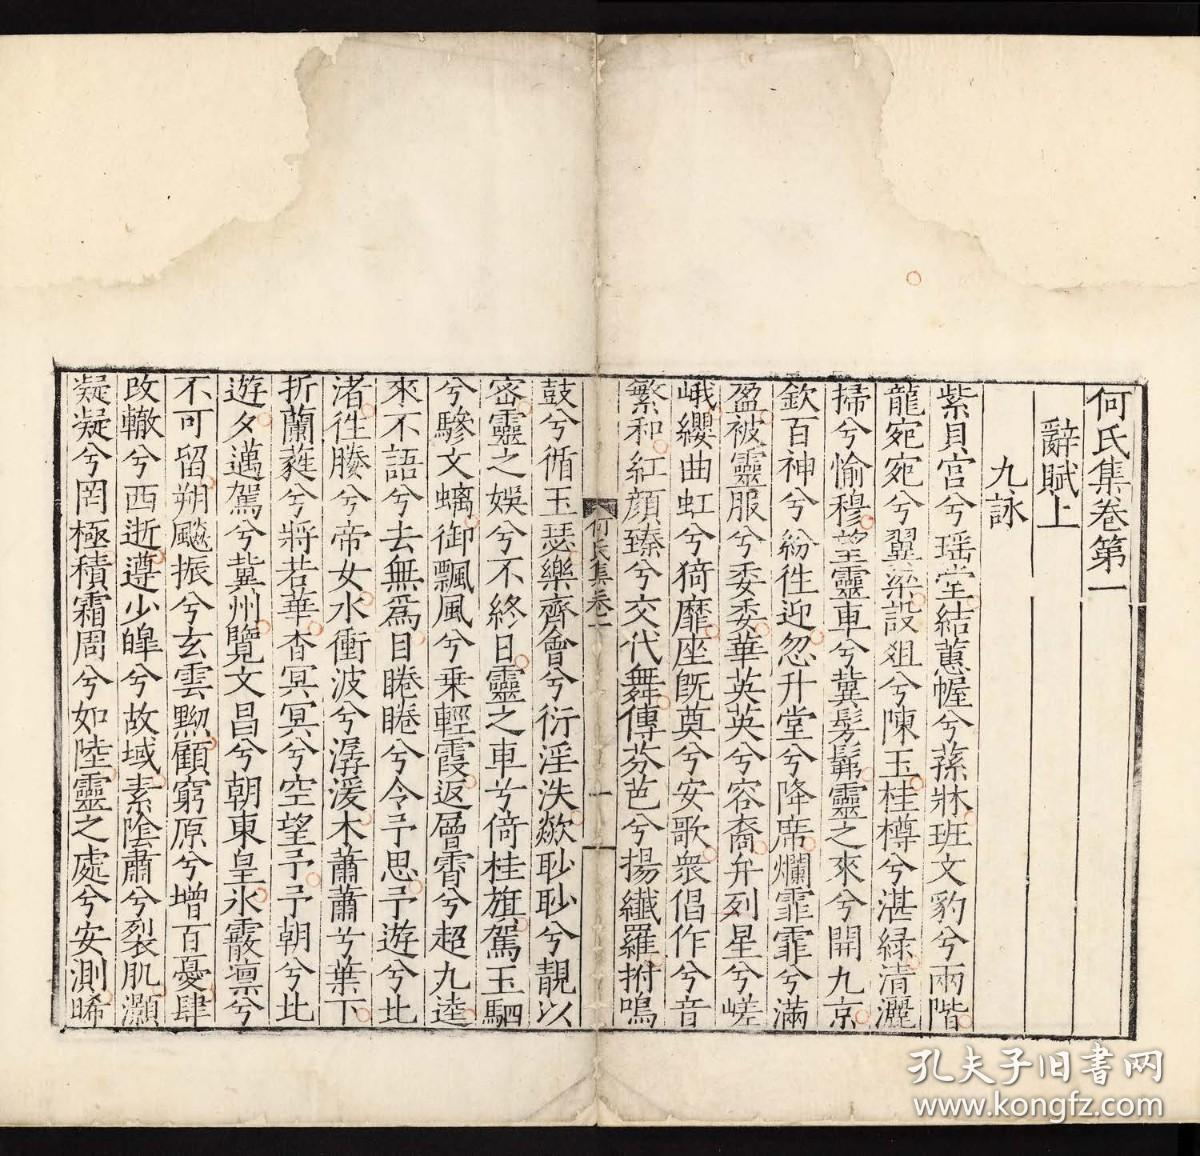 何氏集卷第一
辭賦上
九詠
紫貝宮兮瑶堂結蕙幄兮蓀牀班文豹兮兩階
龍宛宛兮翼梁設俎兮陳玉桂樽兮湛緑清灑
掃兮愉穆望靈車兮冀髣髴靈之來兮開九京
欽百神兮紛徃迎忽升堂兮降席爛霏霏兮滿
盈被靈服兮委委華英英兮容裔弁列星兮嵯
峨纓曲虹兮猗靡座既奠兮安歌衆倡作兮音
繁和紅顔臻兮交代舞傳芬芭兮揚纖羅拊鳴
何氏集卷一
一
鼓兮循玉瑟樂齊會兮衍淫泆歘眇眇兮靚以
密靈之娛兮不終日靈之車兮倚桂旗駕玉駟
兮驂文螭御飄風兮乗輕霞返層霄兮超九逵
來不語兮去無爲目睠睠兮令予思予遊兮北
渚徃媵兮帝女水衝波兮潺湲木蕭蕭兮葉下
折蘭蕤兮將若華杳冥冥兮空望予予朝兮北
遊夕邁駕兮冀州覽文昌兮朝東皇氷霰凛兮
不可留朔飈振兮玄雲黝顧窮原兮增百憂肆
改轍兮西逝遵少皡兮故域素陰肅兮裂肌灝
凝凝兮罔極積霜周兮如陸靈之處兮安測晞
孔夫子旧书网
www.kongfz.com